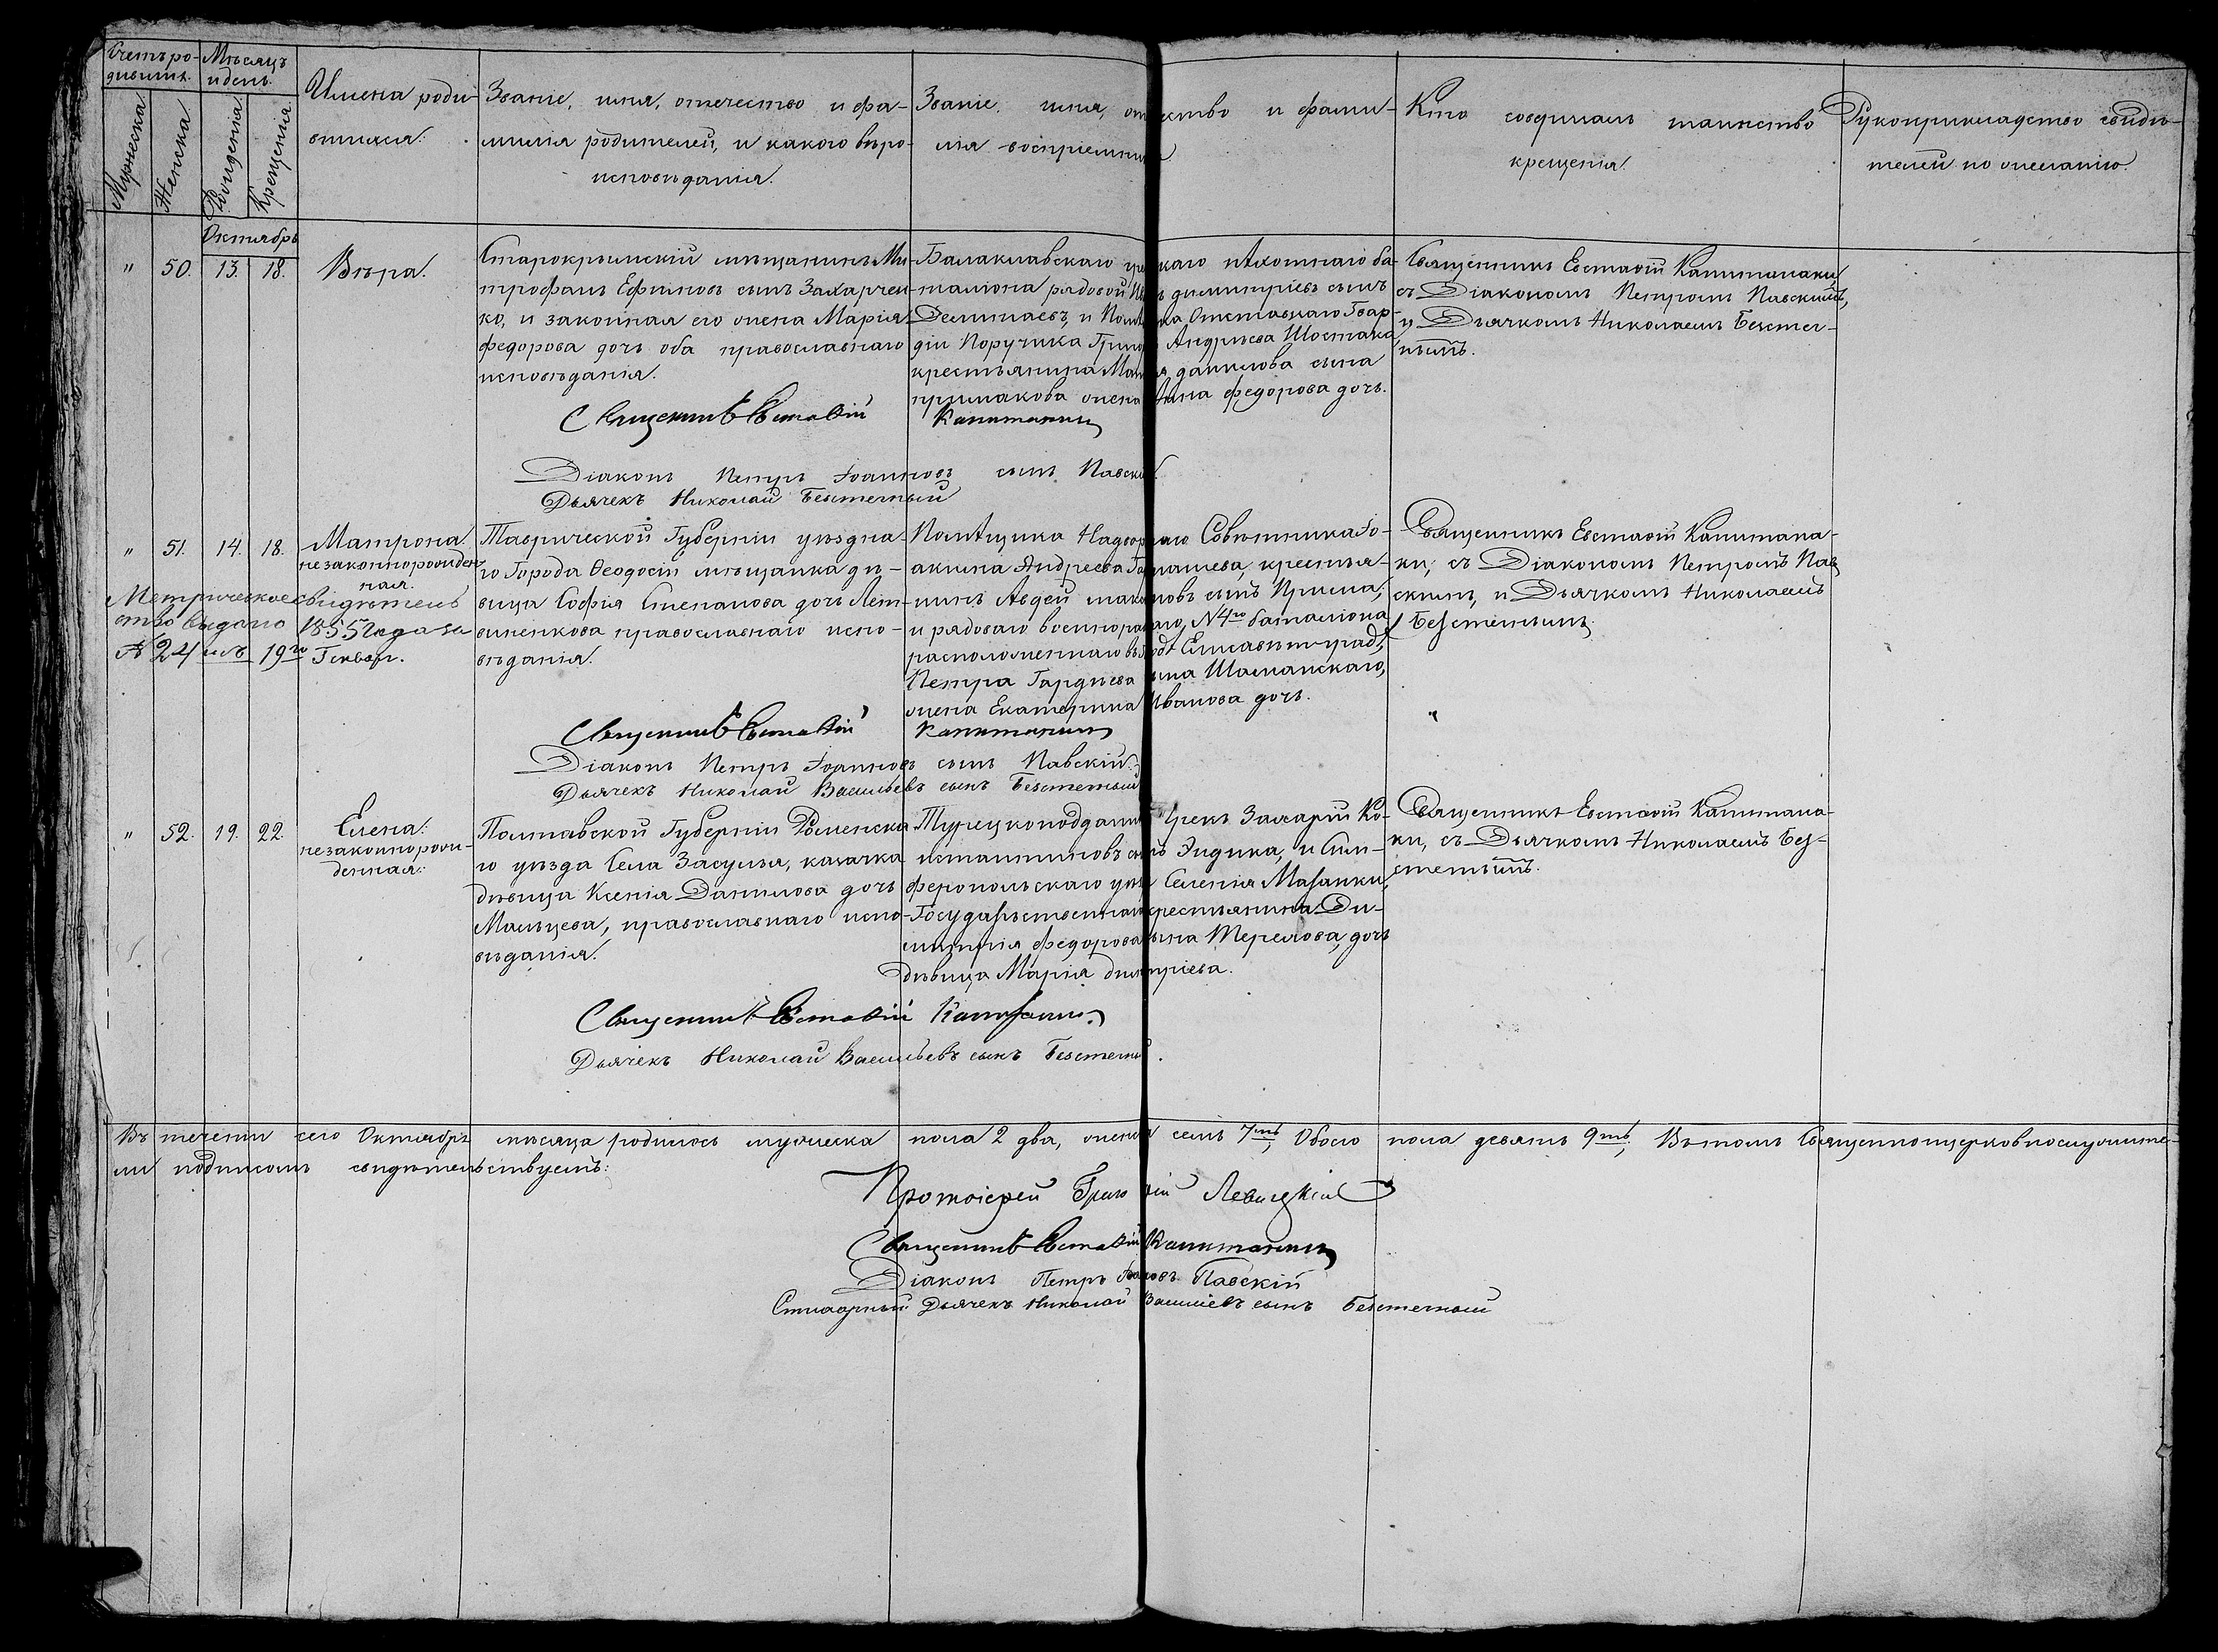 Счетъ ро-
дившихся.
Мѣсяцъ
и день.
Мужеска.
Женска.
Рожденія.
Крещенія.
Имена роди-
вшихся.
Званіе, имя, отечество и фа-
милія родителей, и какого вѣро-
исповѣданія.
Званіе, имя, отчество и фами-
лія воспріемник
Кто совершалъ таинство
крещенія.
Рукоприкладство свидѣ-
телей по желанію.
Октябрь
" 50. 13. 18. Вѣра.
Старокрымскій мѣщанинъ Ми-
трофанъ Ефимовъ сынъ Захарчен-
ко, и законная его жена Марія
федорова дочь оба православнаго
исповѣданія.
Балаклавскаго греческаго пѣхотнаго ба-
таліона рядовой димитріевъ сынъ
и Отставнаго Гвар-
діи Поручика Андрѣева Шостака
крестьянина данилова сына
примакова жена Анна федорова дочь.
Священникъ Евстафій Капитанаки
съ Діакономъ Петромъ Павскимъ,
и Дьячкомъ Николаемъ Безстен-
нымъ.
Священникъ Евстафій Капитанаки
Діаконъ Петръ Іоанновъ сынъ Павскій
Дьячекъ Николай Безстенный
" 51. 14. 18. Матрона.
незаконнорожден-
ная.
Метрическое свидѣтель
ство выдано 1855 года за
№ 24 19го Генвар.
Таврической Губерніи уѣздна-
го Города Ѳеодосіи мѣщанка дѣ-
вица Софія Степанова дочь Лет-
виненкова православнаго испо-
вѣданія.
Помѣщика Надворнаго Совѣтника Іо-
акима Андреева крестья-
нинъ Авдей сынъ Прима,
и рядоваго №4го баталіона
расположеннаго въ Елисаветградѣ,
Петра Гардѣева сына Шаманскаго,
жена Екатерина Иванова дочь.
Священникъ Евстафій Капитана-
ки, съ Діакономъ Петромъ Пав
скимъ, и Дьячкомъ Николаемъ
Безстеннымъ.
Священникъ Евстафій Капитанаки
Діаконъ Петръ Іоанновъ сынъ Павскій.
Дьячекъ Николай Васильевъ сынъ Безстенный
" 52. 19. 22. Елена.
незаконнорож-
денная.
Полтавской Губерніи Роменска
го уѣзда Села Засулья, казачка
дѣвица Ксенія Данилова дочь
Мальцева, православнаго испо-
вѣданія.
Турецкоподданный Грекъ Захарій Ко-
нстантиновъ сынъ Эндика, и Сим-
феропольскаго уѣзда Селенія Мазанки,
Государственнаго крестьянина Ди-
митрія федорова сына Терехова, дочь
дѣвица Марія димитріева.
Священникъ Евстафій Капитана-
ки, съ Дьячкомъ Николаемъ Без-
стеннымъ.
Священникъ Евстафій Капитанаки
Дьячекъ Николай Васильевъ сынъ Безстенный.
Въ теченіи сего Октябрь мѣсяца родилось мужеска пола 2 два, женска семь 7мь, Обоего пола девять 9ть, Въ томъ Священноцерковнослужите-
ли подписомъ свидѣтельствуемъ:
Протоіерей Левицкій
Священникъ Евстафій Капитанаки
Діаконъ Петръ Іоановъ Павскій
Стихарный Дьячекъ Николай Василіевъ сынъ Безстенный